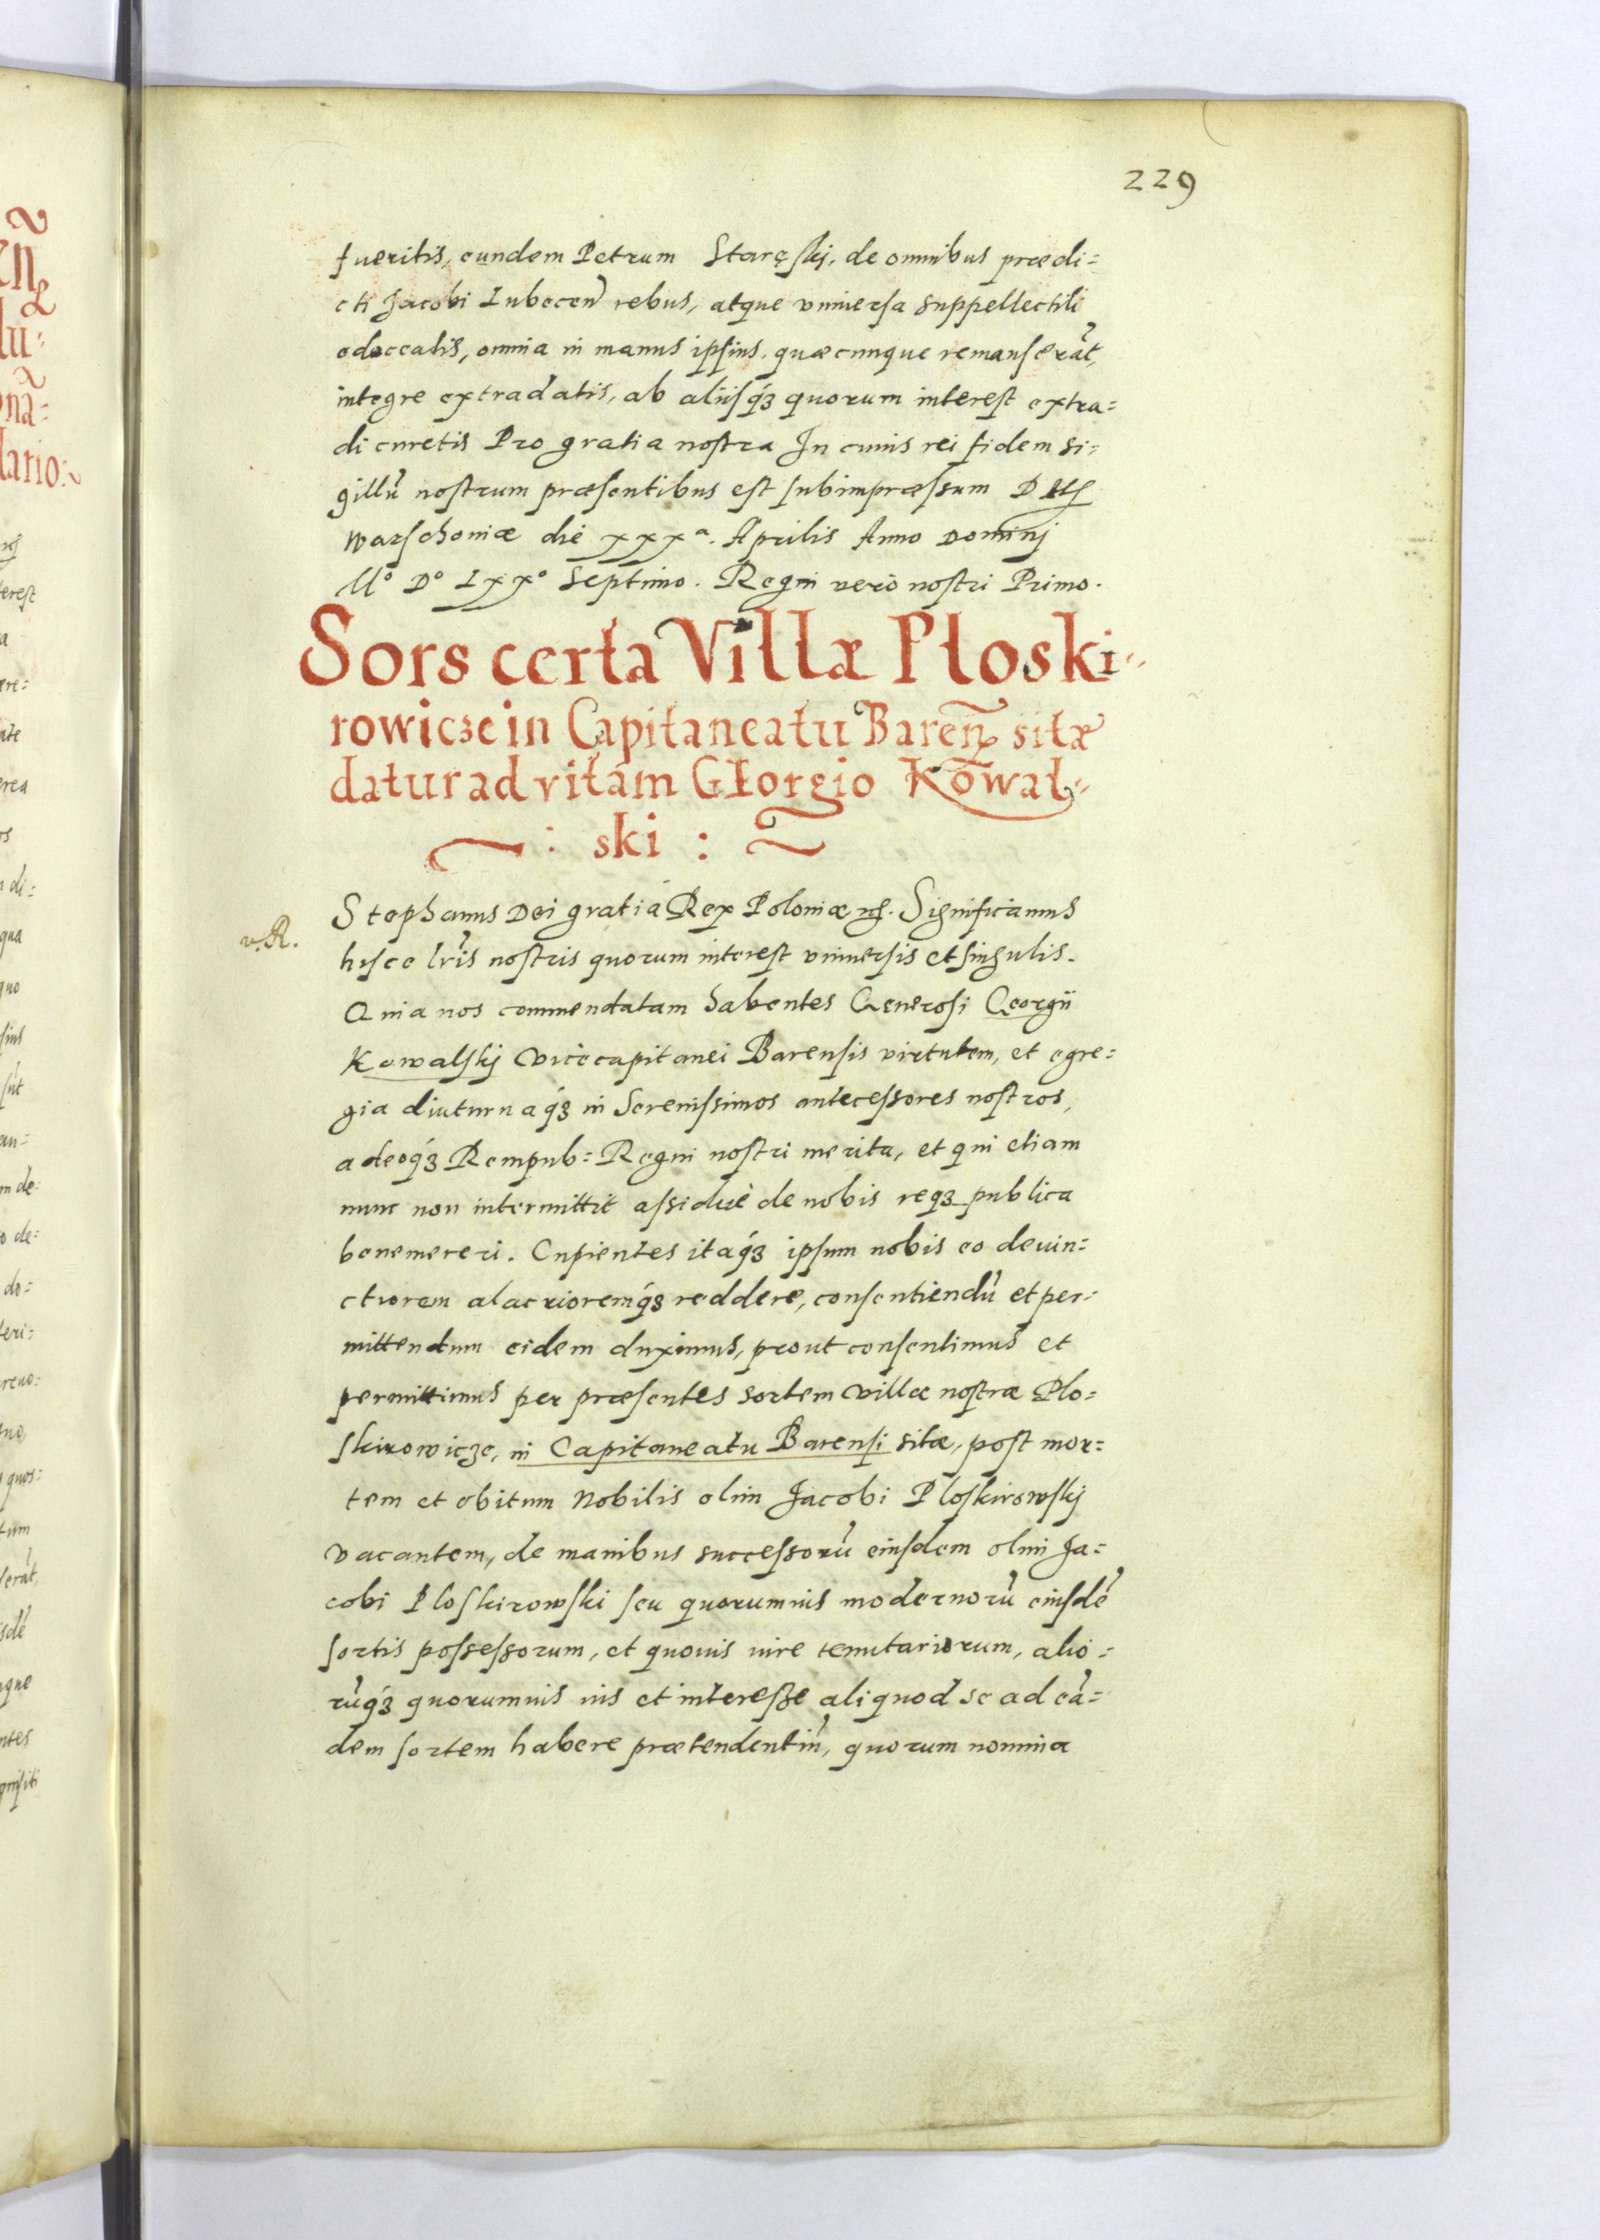 229
fueritis, eundem Petrum Staręskj, de omnibus prædi=
cti Jacobi Lubecen̄ rebus, atque vniuersa suppellectili
edoceatis, omnia in manus ipsius, quæcunque remanserūt,
integre extradatis, ab alijsq́ꝫ quorum interest extra=
di curetis Pro gratia nostra In cuius rei fidem si=
gillū nostrum præsentibus est subimpræssum
Warschouiæ die xxxᵃ. Aprilis Anno Dominj
Mº Dº Lxxº Septimo. Regni verò nostri Primo.
Sors certa Villæ Płoski=
rowicze in Capitaneatu Baren̄ sitæ
datur ad vitam GEorgio Kowal=
: ski :
v. R.
Stephanus Dei gratiá Rex Poloniæ Significamus
hisce lr̄is nostris quorum interest vniuersis et singulis.
Quia nos commendatam habentes Generosi Georgii
Kowalskj vicecapitanei Barensis virtutem, et egre=
gia diuturnaq́ꝫ in Serenissimos antecessores nostros,
adeoq́ꝫ Rempub= Regni nostri merita, et qui etiam
nunc non intermittit assiduè de nobis reqꝫ publica
benemereri. Cupientes itaq́ꝫ ipsum nobis eo deuin=
ctiorem alacrioremq́ꝫ reddere, consentiendū et per=
mittendum eidem duximus, prout consentimus et
permittimus per præsentes sortem villæ nostræ Plo=
skirowicze, in Capitaneatu Barensi sitæ, post mor=
tem et obitum Nobilis olim Jacobi Ploskirowskj
vacantem, de manibus successorū eiusdem olim Ja=
cobi Ploskirowski seu quorumuis modernorū eiusdē
sortis possessorum, et quouis iure tenutariorum, alio=
rūq́ꝫ quorumuis ius et interesse aliquod se ad eā=
dem sortem habere prætendentiū, quorum nomina